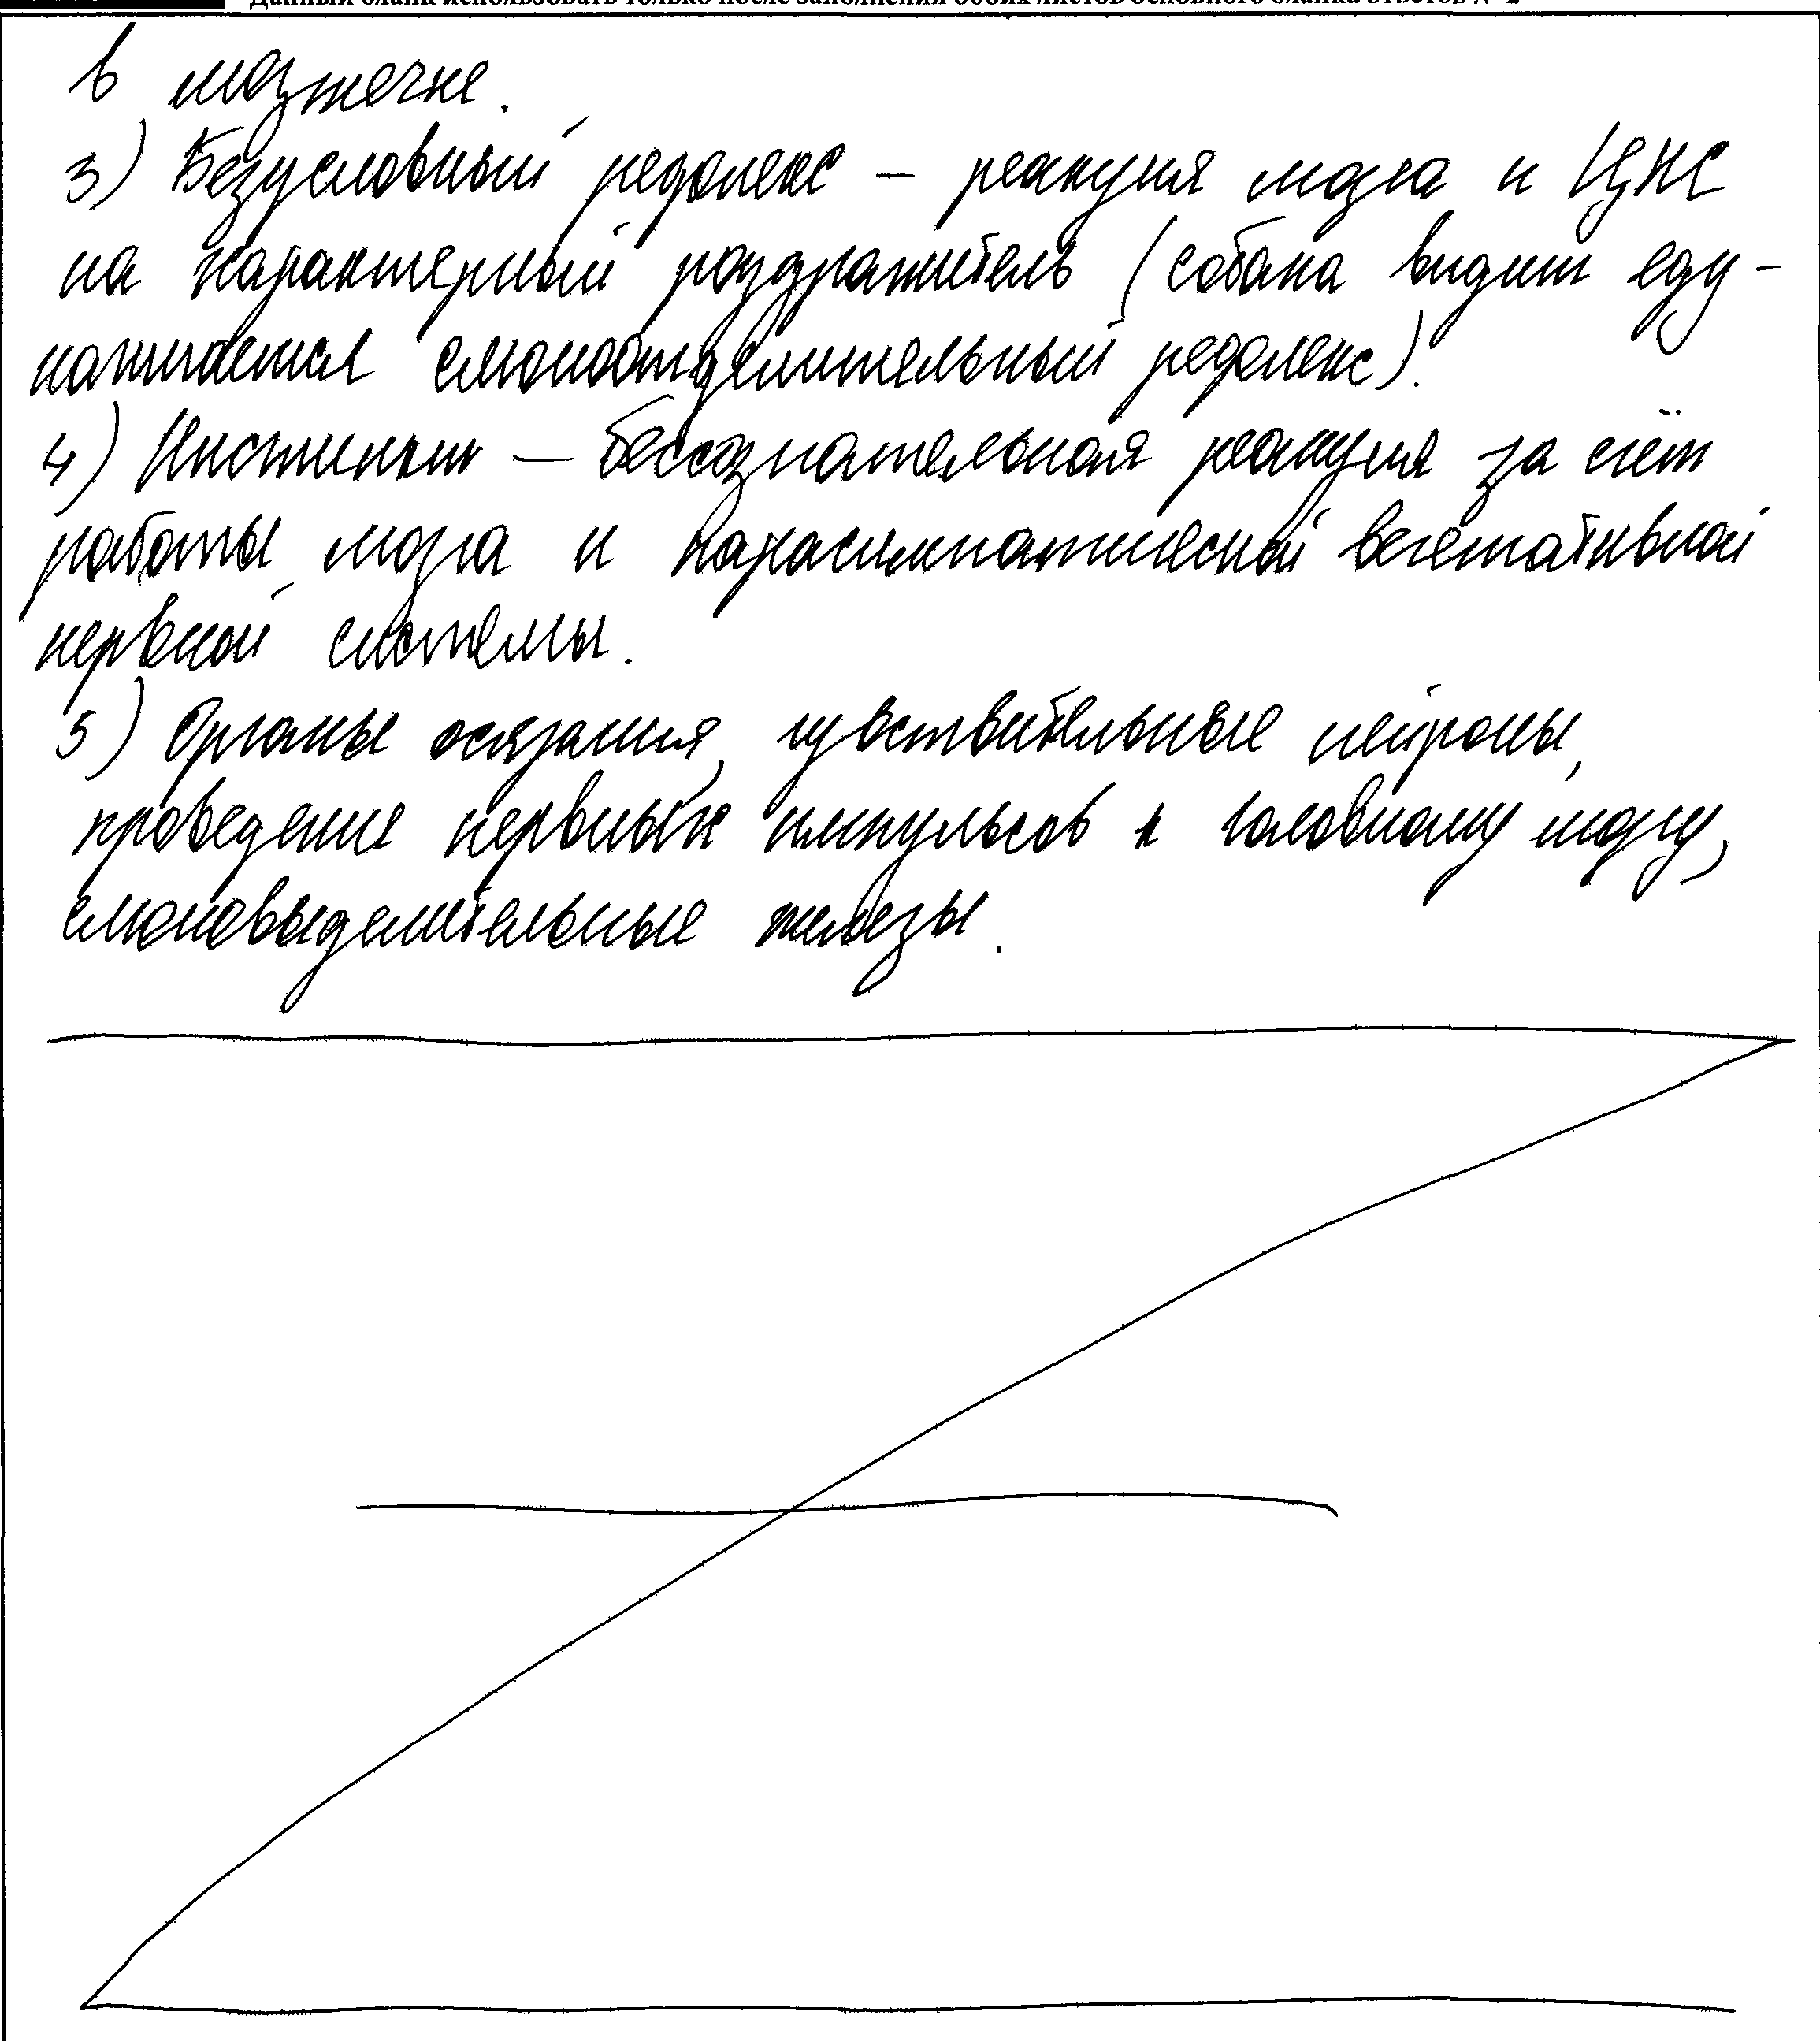 Данный бланк использовать только после заполнения обоих листов основного бланка ответов № 2
в мозжечке.
3) Безусловный рефлекс – реакция мозга и ЦНС
на характерный раздражитель (собака видит еду –
начинается слюноотделительный рефлекс).
4) Инстинкт — бессознательная реакция за счёт
работы мозга и парасимпатической вегетативной
нервной системы.
5) Органы осязания, чувствительные нейроны,
проведение нервных импульсов к головному мозгу,
слюновыделительные железы.